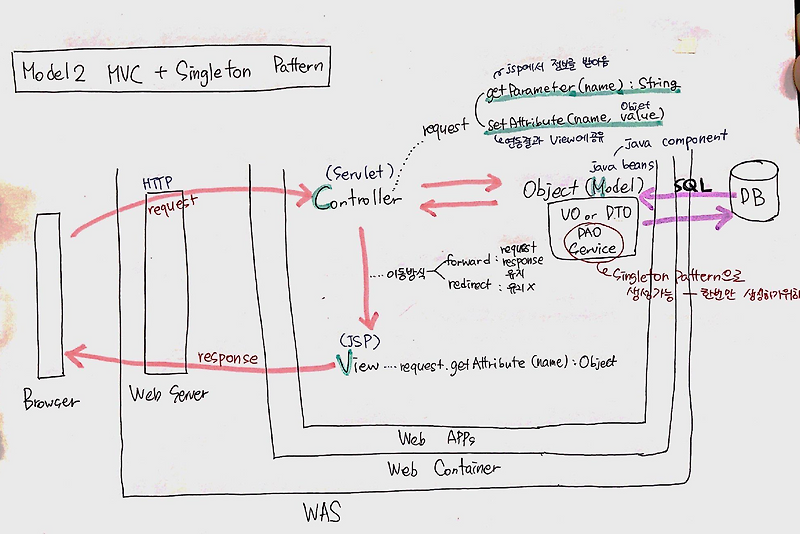 Model2 MVC + Singleton Pattern
jsp에서 정보를 받아옴
getParameter(name) : String
Objet
setAttribute(name, value)
request
연동결과 View에 공유
Java component
java beans
(Servlet)
Controller
Object (Model)
SQL
DB
VO or DTO
DAO
Service
Singleton Pattern으로
생성가능 — 한번만 생성하기위해
HTTP
request
이동방식
forward : request
response
유지
redirect : 유지 X
(JSP)
View .... request.getAttribute (name) : Object
response
Browser
Web Server
Web APPs
Web Container
WAS